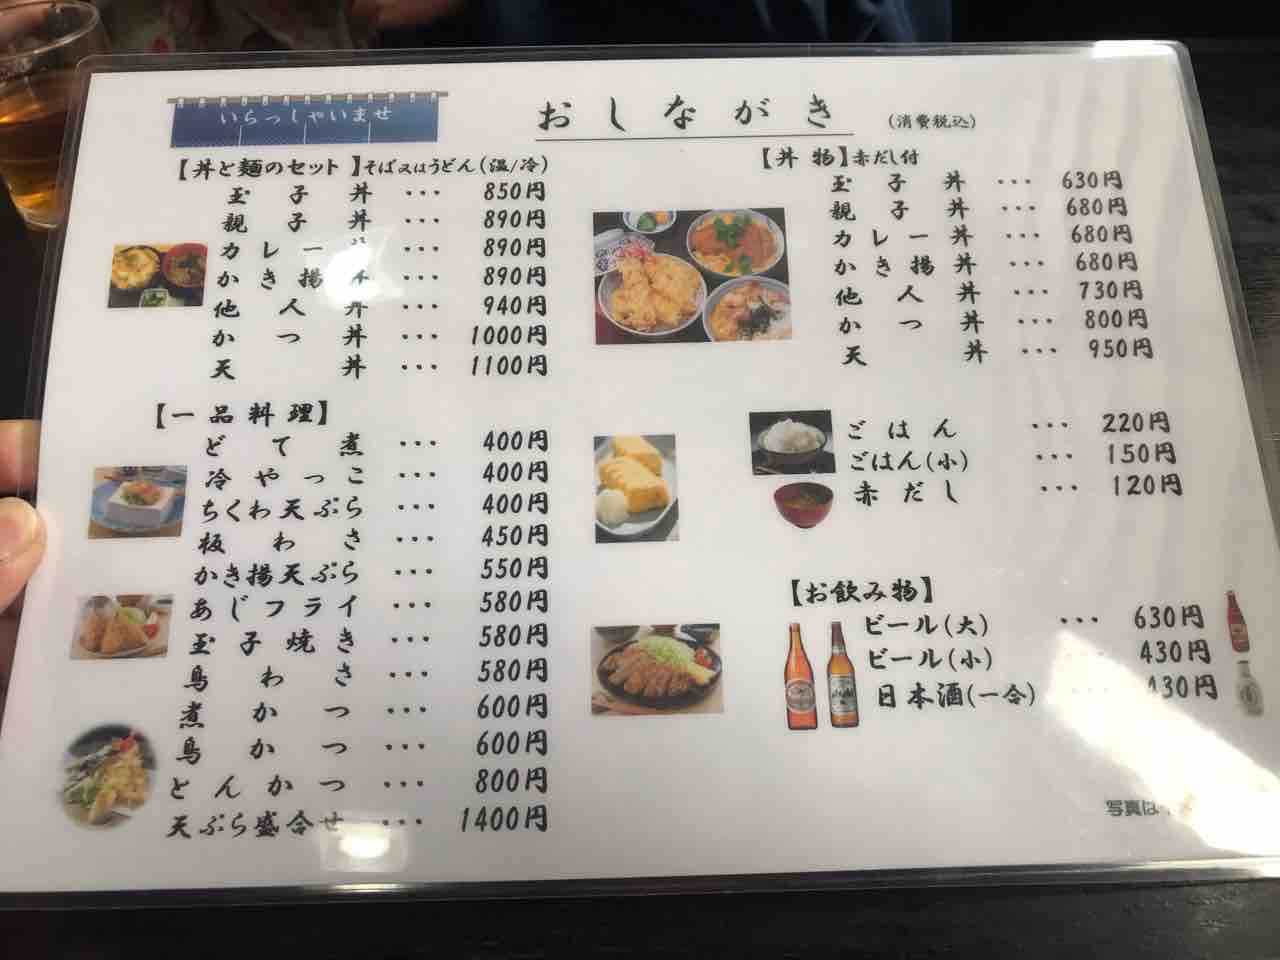 いらっしゃいませ
おしながき (消費税込)
【丼と麺のセット】そば又はうどん(温/冷)
玉子丼 ・・・ 850円
親子丼 ・・・ 890円
カレー丼 ・・・ 890円
かき揚丼 ・・・ 890円
他人丼 ・・・ 940円
かつ丼 ・・・ 1000円
天丼 ・・・ 1100円
【一品料理】
どて煮 ・・・ 400円
冷やっこ ・・・ 400円
ちくわ天ぷら ・・・ 400円
板わさ ・・・ 450円
かき揚天ぷら ・・・ 550円
あじフライ ・・・ 580円
玉子焼き ・・・ 580円
鳥わさ ・・・ 580円
煮かつ ・・・ 600円
鳥かつ ・・・ 600円
とんかつ ・・・ 800円
天ぷら盛合せ ・・・ 1400円
【丼物】赤だし付
玉子丼 ・・・ 630円
親子丼 ・・・ 680円
カレー丼 ・・・ 680円
かき揚丼 ・・・ 680円
他人丼 ・・・ 730円
かつ丼 ・・・ 800円
天丼 ・・・ 950円
ごはん ・・・ 220円
ごはん(小) ・・・ 150円
赤だし ・・・ 120円
【お飲み物】
ビール(大) ・・・ 630円
ビール(小) ・・・ 430円
日本酒(一合) ・・・ 430円
Asahi
写真は